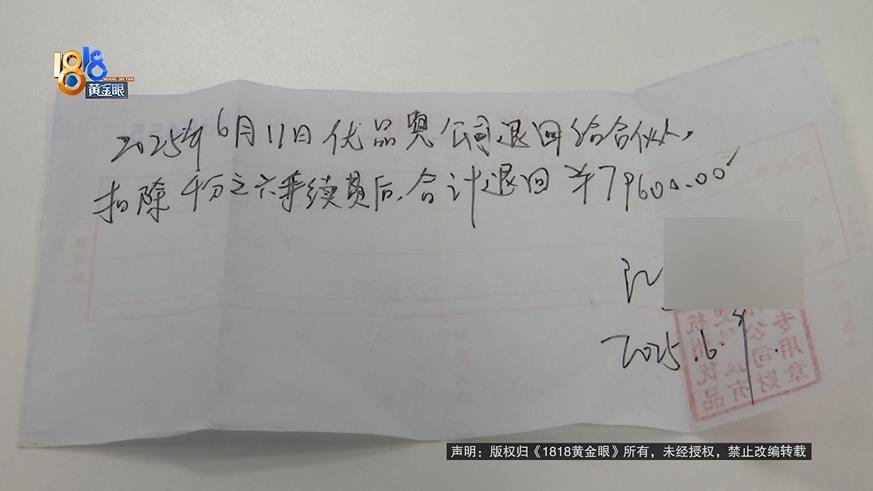 1818
黄金眼
2025年6月11日优品奥公司退回给合伙人,
扣除千分之六手续费后,合计退回¥79600.00
2025.6.9.
声明:版权归《1818黄金眼》所有,未经授权,禁止改编转载